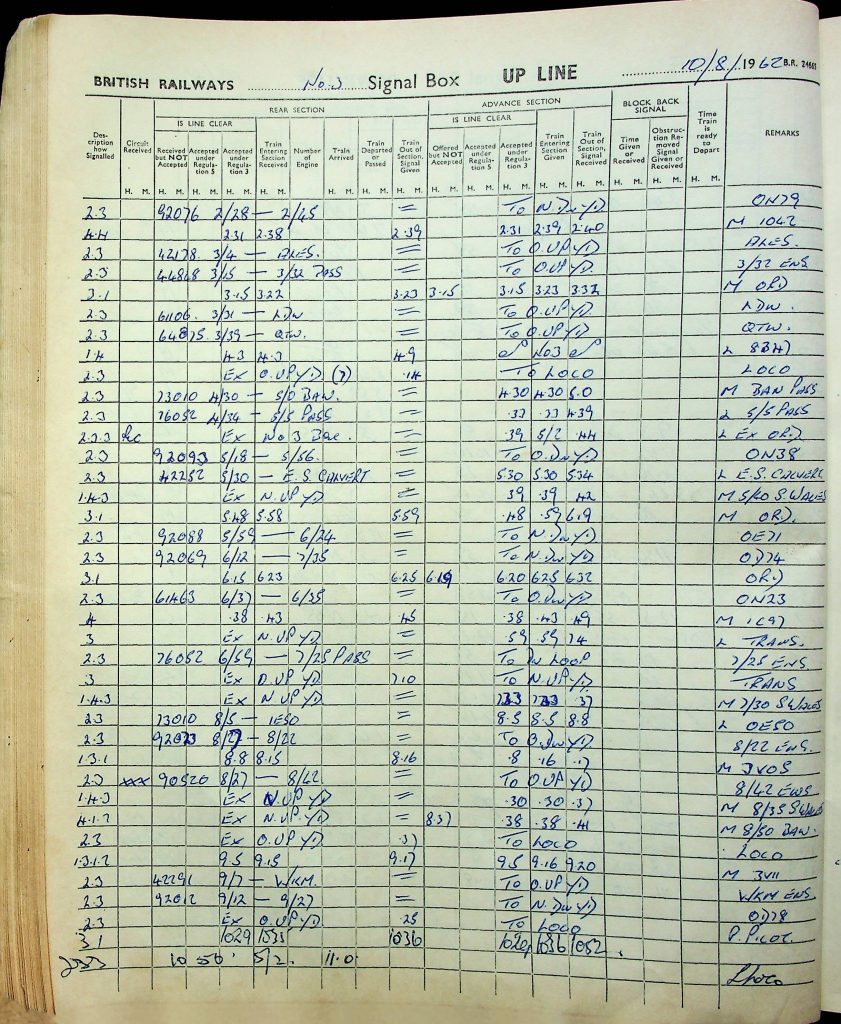 BRITISH RAILWAYS No. 3 Signal Box UP LINE 10/8/1962 B.R. 24661
REAR SECTION ADVANCE SECTION BLOCK BACK SIGNAL
IS LINE CLEAR IS LINE CLEAR
Des-cription how Signalled Circuit Received Received but NOT Accepted Accepted under Regula-tion 5 Accepted under Regula-tion 3 Train Entering Section Received Number of Engine Train Arrived Train Departed or Passed Train Out of Section, Signal Given Offered but NOT Accepted Accepted under Regula-tion 5 Accepted under Regula-tion 3 Train Entering Section Given Train Out of Section, Signal Received Time Given or Received Obstruc-tion Re-moved Signal Given or Received Time Train is ready to Depart REMARKS
H. M. H. M. H. M. H. M. H. M. H. M. H. M. H. M. H. M. H. M. H. M. H. M. H. M. H. M. H. M. H. M.
2.3 92076 2/28 — 2/45 = To N. Dn YD ON79
4.4 2.31 2.38 2.39 2.31 2.39 2.40 M 1042
2.3 42178. 3/4 — ALES. = To O.UP.YD. ALES.
2.3 44868 3/15 — 3/32 PASS = To O.UP YD. 3/32 ENS
3.1 3.15 3.22 3.23 3.15 3.15 3.23 3.32 M ORD
2.3 61106. 3/31 — LDW = To O.UP YD. LDW.
2.3 64875. 3/39 — QTW. = To O.UP YD. QTW.
1.4 4.3 4.3 4.9 No3 L
2.3 Ex O.UP YD. (7) .14 To LOCO LOCO
2.3 73010 4/30 — 5/0 BAN. = 4.30 4.30 5.0 M BAN PASS
2.3 76052 4/34 — 5/5 PASS = .33 .33 4.39 L 5/5 PASS
2.3.3 Rec Ex No 3 Box. = .39 5/2 .44 L Ex ORD
2.3 92093 5/18 — 5/56. = To O.Dn YD ON38
2.3 42252 5/30 — E.S. CALVERT = 5.30 5.30 5.34 L E.S. CALVERT
1.4.3 Ex N.UP YD = .39 .39 .42 M 5/40 S.WALES
3.1 5.48 5.58 5.59 .48 .59 6.9 M ORD.
2.3 92088 5/59 — 6/24 = To N.Dn YD OE71
2.3 92069 6/12 — 7/35 = To N.Dn YD OD74
3.1 6.15 6.23 6.25 6.19 6.20 6.25 6.32 ORD
2.3 61463 6/31 — 6/35 = To O.Dn YD ON23
4 .38 .43 .45 .38 .43 .49 M 1C97
3 Ex N.UP YD = .59 .59 7.4 L TRANS.
2.3 76052 6/59 — 7/25 PASS = To Dn LOOP 7/25 ENS.
3 Ex O.UP YD 7.10 To N.UP.YD TRANS
1.4.3 Ex N UP YD = 7.33 7.33 .37 M 7/30 S WALES
2.3 73010 8/5 — 1E50 = 8.5 8.5 8.8 L OE50
2.3 92023 8/27 — 8/22 = To O.Dn YD 8/22 ENS.
1.3.1 8.8 8.15 8.16 .8 .16 .17 M 3V05
2.3 xxx 90520 8/27 — 8/42 = To O.UP YD 8/42 EWS
1.4.3 Ex N.UP YD = .30 .30 .37 M 8/35 S WALES
4.1.2 Ex N.UP YD = 8.37 .38 .38 .41 M 8/50 BAN.
2.3 Ex O.UP YD .37 To LOCO LOCO
1.3.1.2 9.5 9.15 9.17 9.5 9.16 9.20 M 3V11
2.3 42291 9/7 — WKM. = To O.UP YD WKM ENS
2.3 92012 9/12 — 9/27 = To N.Dn YD OD78
2.3 Ex O.UP YD .25 To LOCO P. PILOT.
3.1 1029 1035 1036 1029 1036 1052
233 10 50 5/2. 11.0. Loco